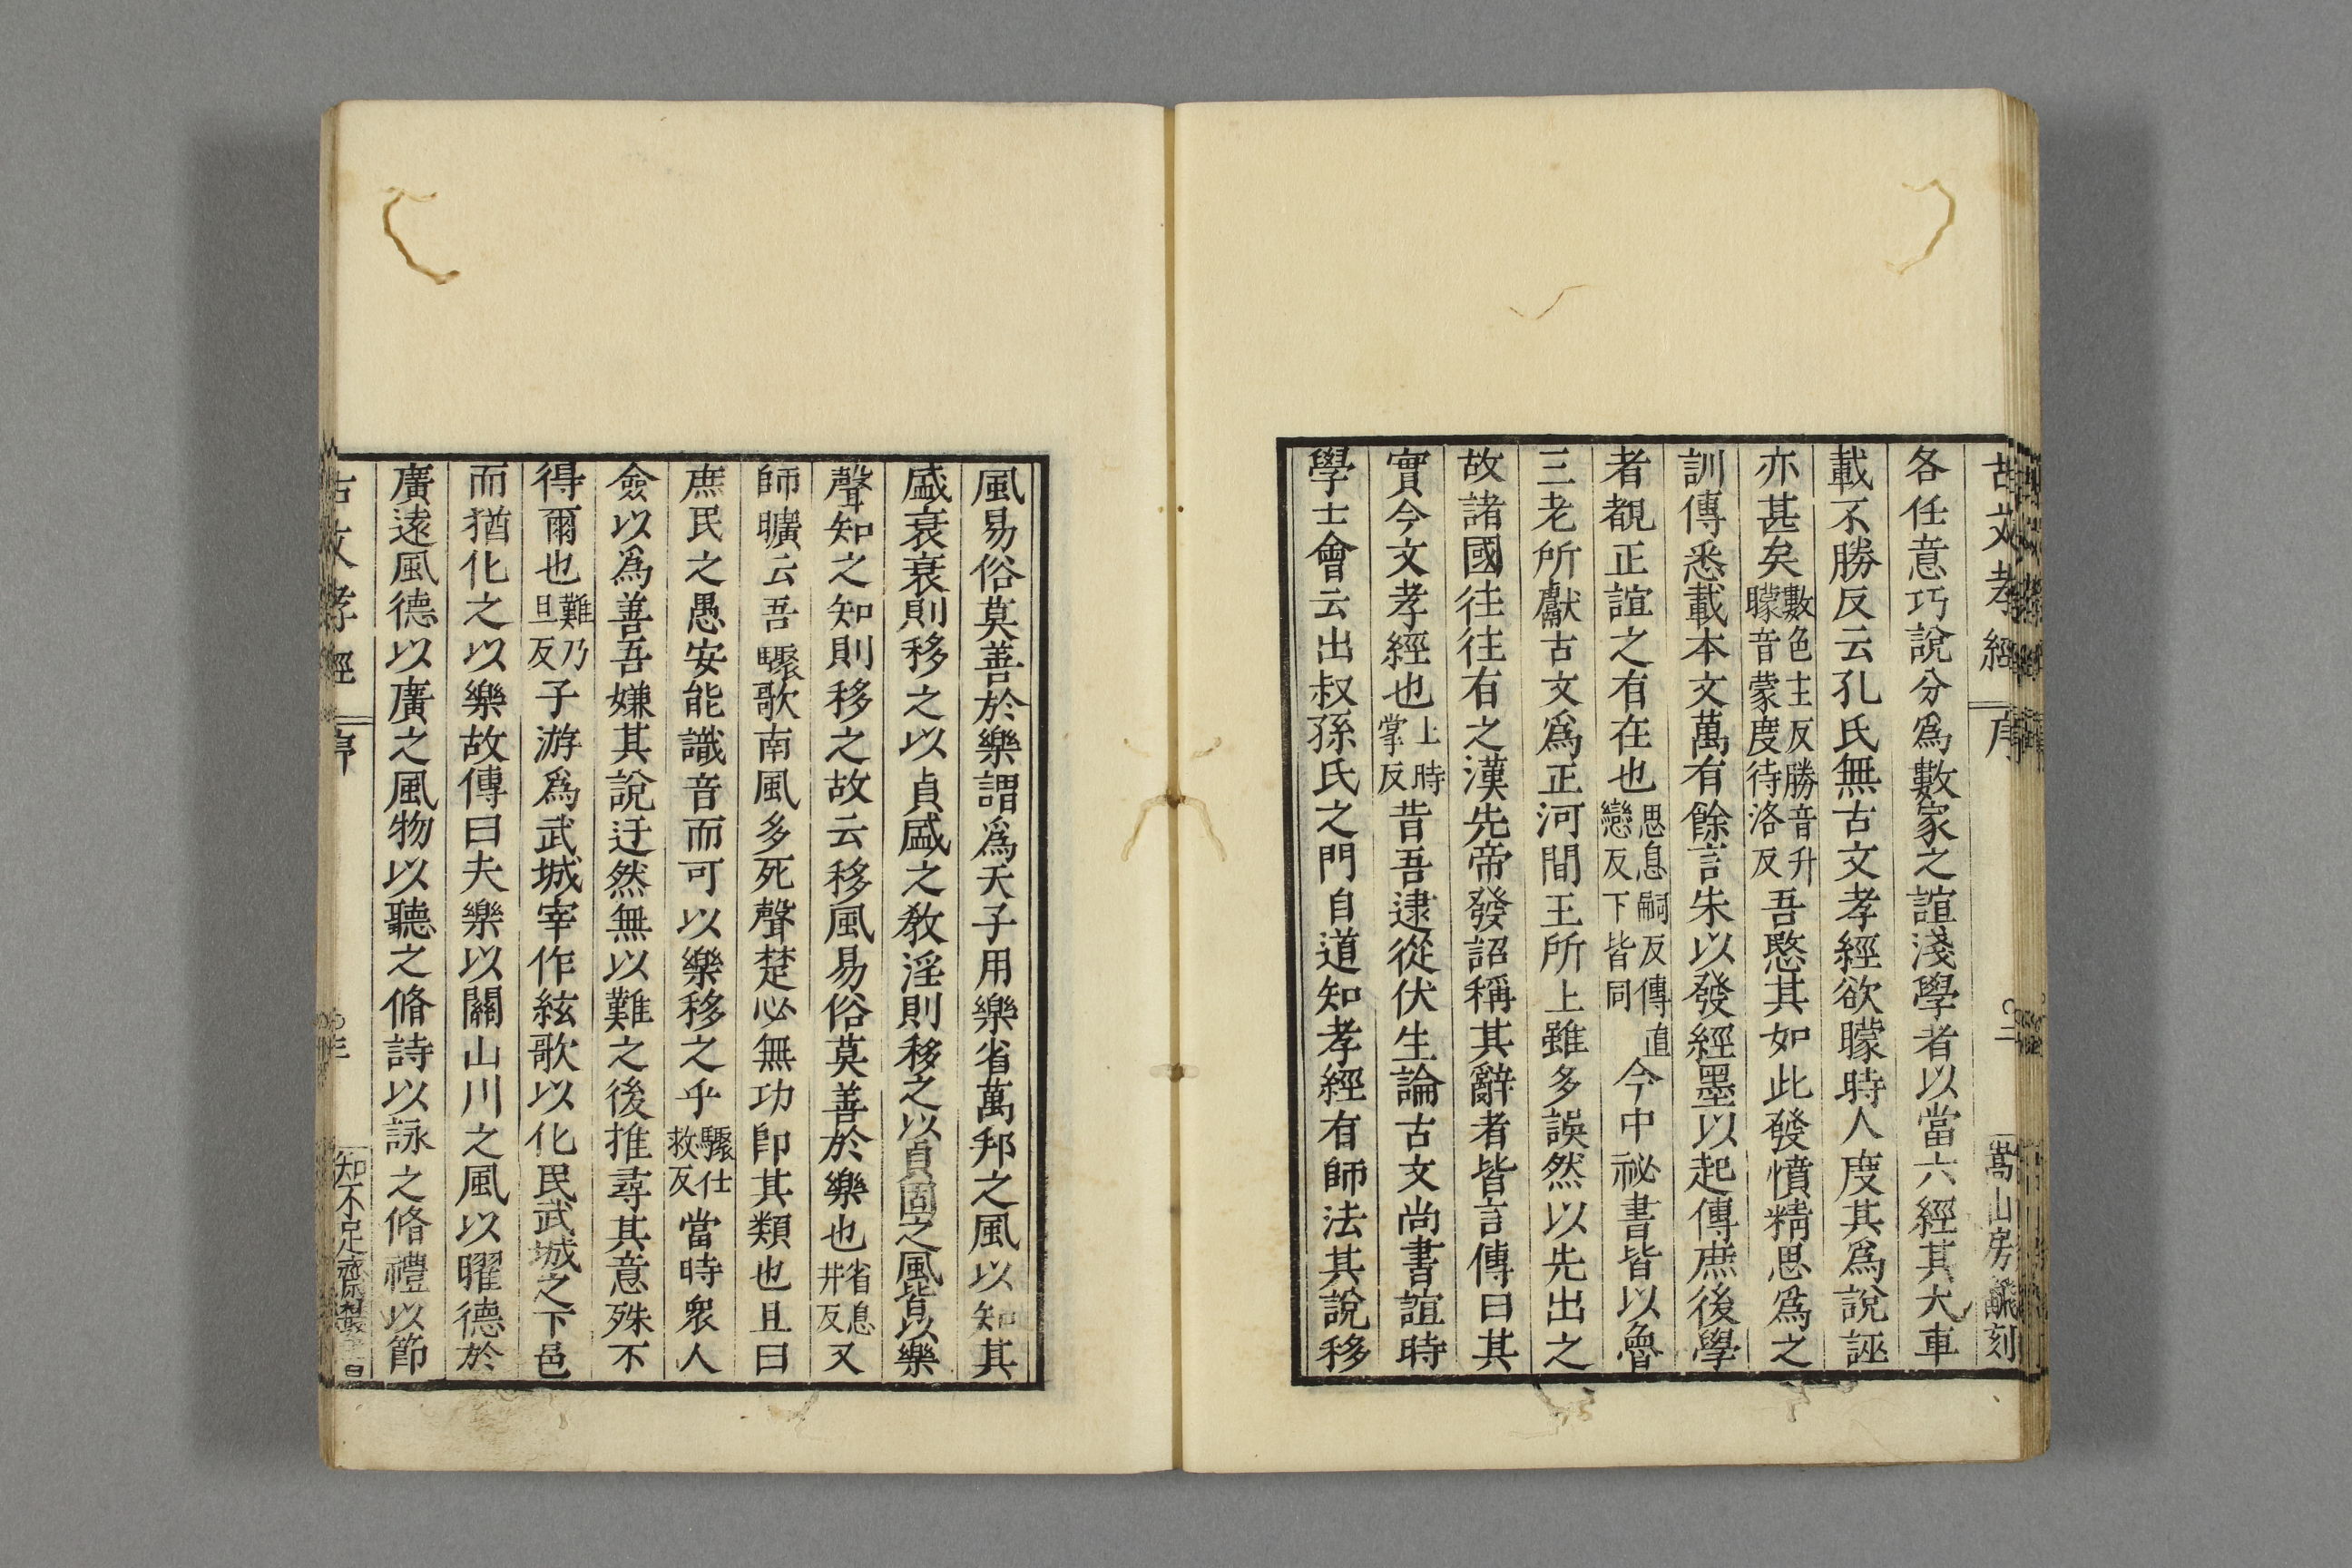 古文孝經 序 二 嵩山房翻刻
各任意巧說分爲數家之誼淺學者以當六經其大車
載不勝反云孔氏無古文孝經欲矇時人度其爲說誣
亦甚矣數色主反勝音升矇音蒙度待洛反吾愍其如此發憤精思爲之
訓傳悉載本文萬有餘言朱以發經墨以起傳庶後學
者覩正誼之有在也思息嗣反傳直戀反下皆同今中祕書皆以魯
三老所獻古文爲正河間王所上雖多誤然以先出之
故諸國往往有之漢先帝發詔稱其辭者皆言傳曰其
實今文孝經也上時掌反昔吾逮從伏生論古文尚書誼時
學士會云出叔孫氏之門自道知孝經有師法其說移
風易俗莫善於樂謂爲天子用樂省萬邦之風以知其
盛衰衰則移之以貞盛之敎淫則移之以貞固之風皆以樂
聲知之知則移之故云移風易俗莫善於樂也省息井反又
師曠云吾驟歌南風多死聲楚必無功卽其類也且曰
庶民之愚安能識音而可以樂移之乎驟仕救反當時衆人
僉以爲善吾嫌其說迂然無以難之後推尋其意殊不
得爾也難乃旦反子游爲武城宰作絃歌以化民武城之下邑
而猶化之以樂故傳曰夫樂以關山川之風以曜德於
廣遠風德以廣之風物以聽之脩詩以詠之脩禮以節
古文孝經 序 三 知不足齋叢書